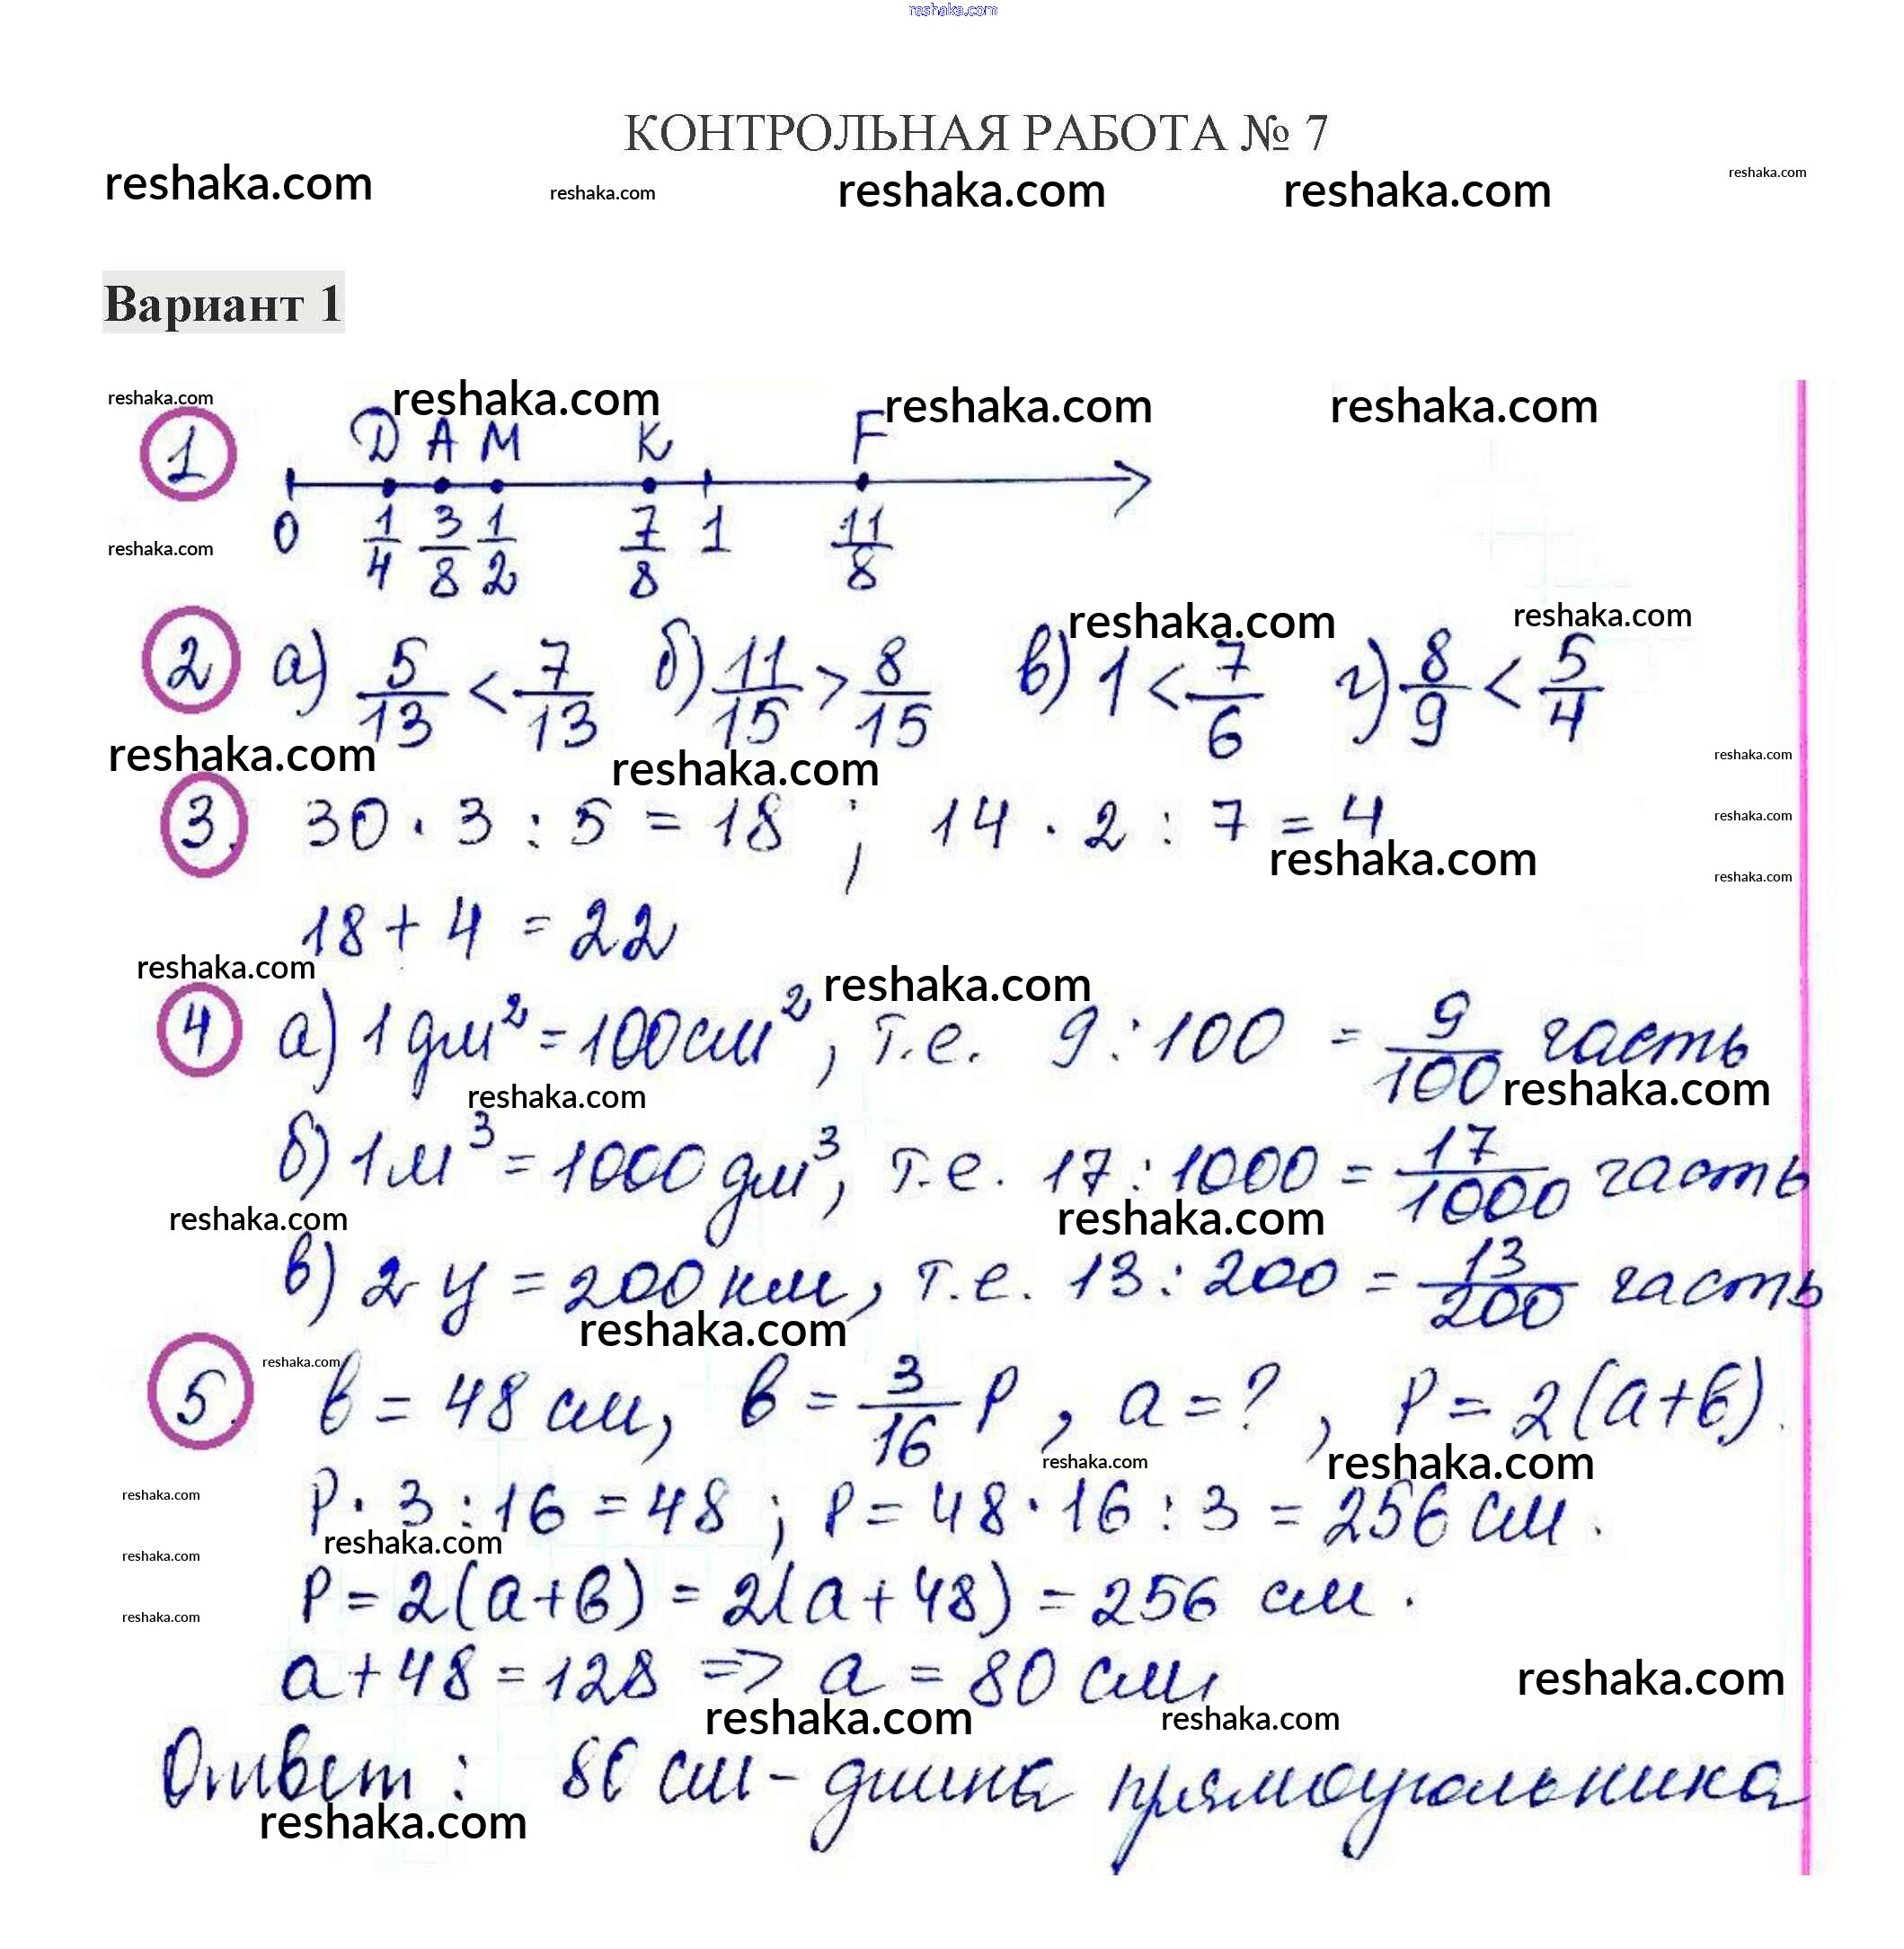 reshaka.com
КОНТРОЛЬНАЯ РАБОТА № 7
reshaka.com reshaka.com reshaka.com reshaka.com reshaka.com
Вариант 1
reshaka.com reshaka.com reshaka.com reshaka.com
1 D A M K F
reshaka.com 0 1/4 3/8 1/2 7/8 1 11/8
reshaka.com reshaka.com
2 а) 5/13 < 7/13 б) 11/15 > 8/15 в) 1 < 7/6 г) 8/9 < 5/4
reshaka.com reshaka.com reshaka.com
3. 30 · 3 : 5 = 18 ; 14 · 2 : 7 = 4
reshaka.com
reshaka.com reshaka.com
18 + 4 = 22
reshaka.com reshaka.com
4 а) 1 дм² = 100 см², т.е. 9 : 100 = 9/100 часть
reshaka.com reshaka.com
б) 1 м³ = 1000 дм³, т.е. 17 : 1000 = 17/1000 часть
reshaka.com reshaka.com
в) 2 ч = 200 км, т.е. 13 : 200 = 13/200 часть
reshaka.com
reshaka.com
5. в = 48 см, в = 3/16 P, а = ?, P = 2(а+в).
reshaka.com reshaka.com
reshaka.com
P · 3 : 16 = 48 ; P = 48 · 16 : 3 = 256 см.
reshaka.com reshaka.com
P = 2(а+в) = 2(а+48) = 256 см.
reshaka.com
а + 48 = 128 => а = 80 см
reshaka.com
reshaka.com reshaka.com
Ответ : 80 см - длина прямоугольника
reshaka.com